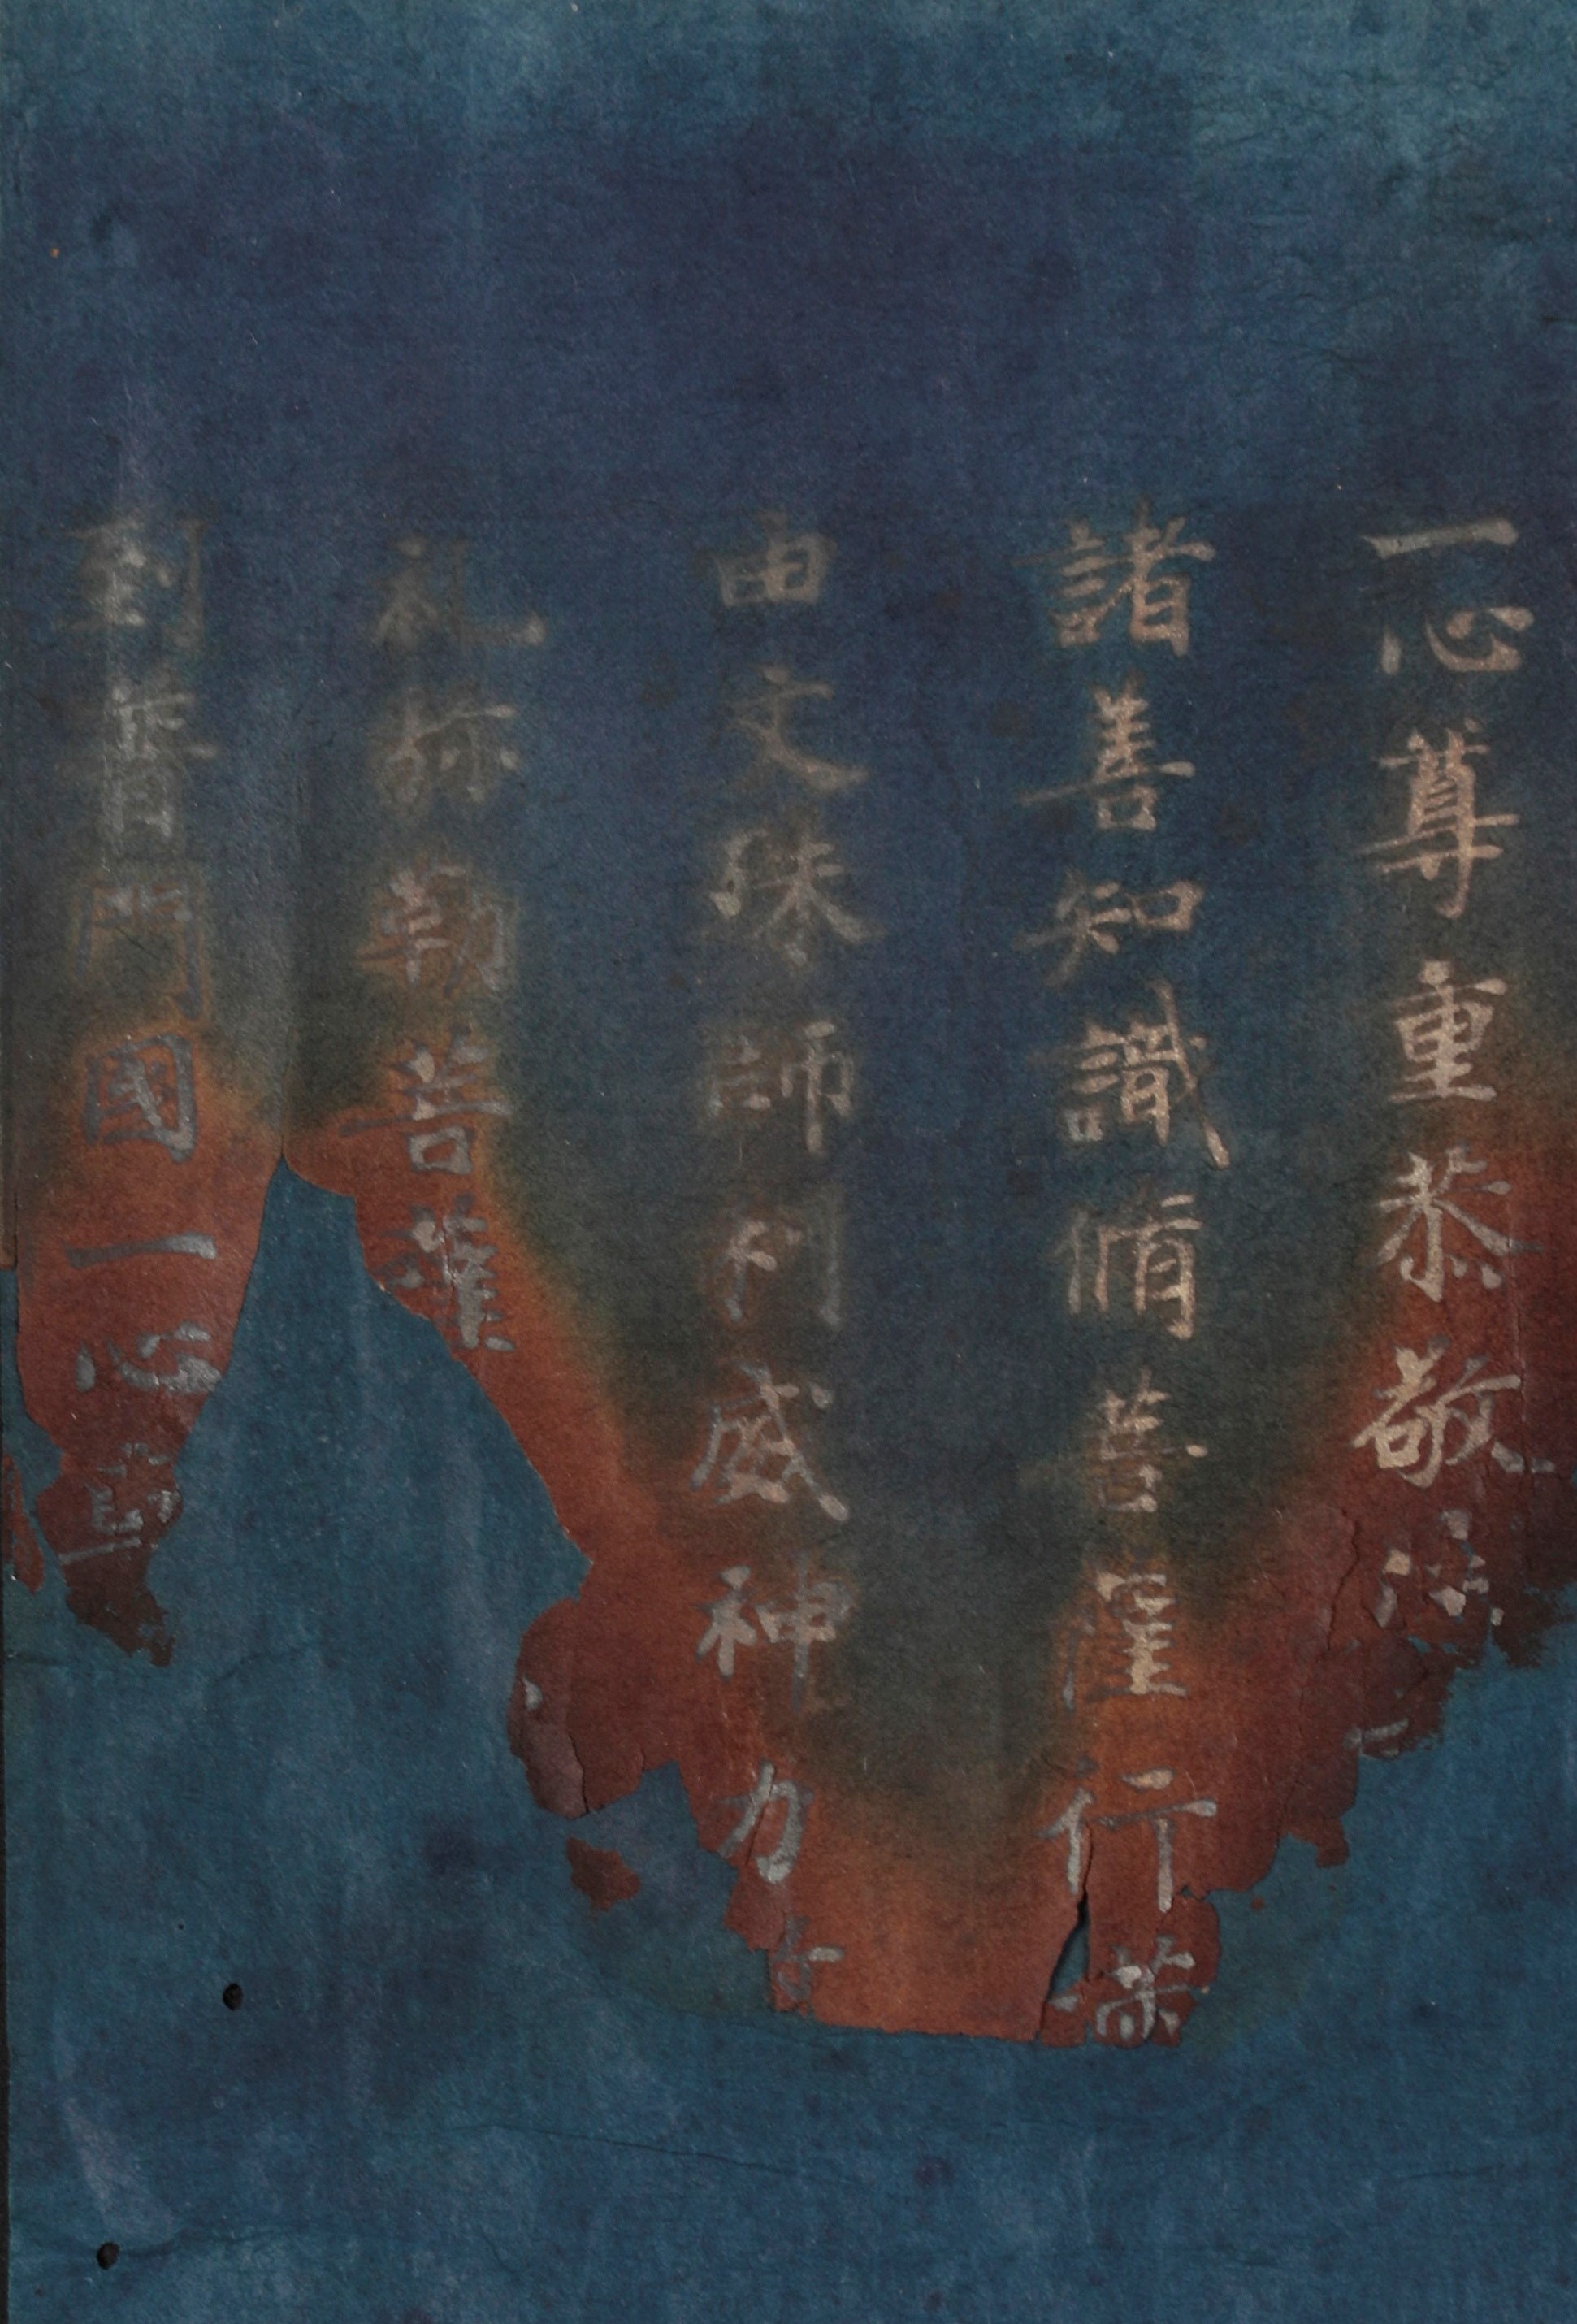 一心尊重恭敬
諸善知識脩菩薩行
由文殊師利威神力
礼弥勒菩薩
到普門國一心